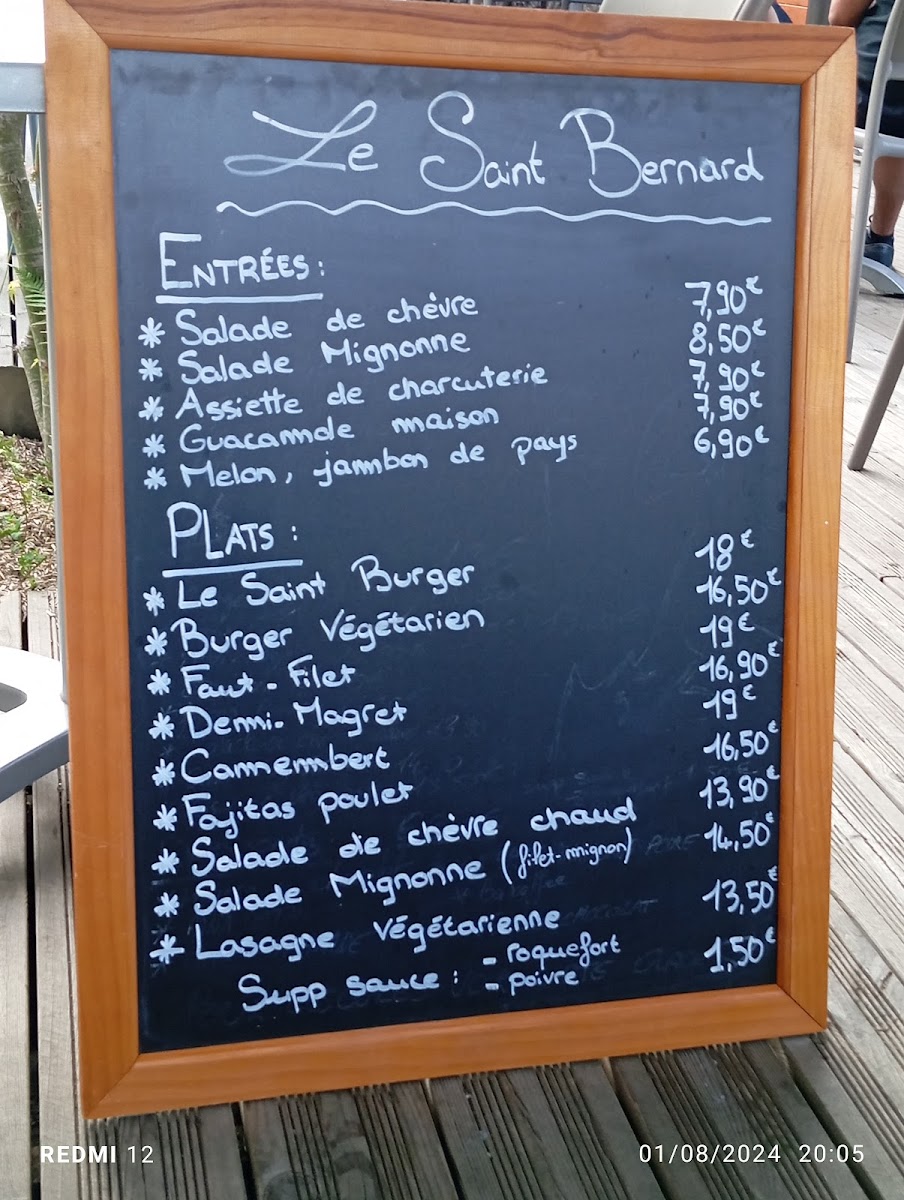 Le Saint Bernard
ENTRÉES :
* Salade de chèvre 7,90€
* Salade Mignonne 8,50€
* Assiette de charcuterie 7,90€
* Guacamole maison 7,90€
* Melon, jambon de pays 6,90€
PLATS :
* Le Saint Burger 18€
* Burger Végétarien 16,50€
* Faux-Filet 19€
* Demi-Magret 16,90€
* Camembert 19€
* Fajitas poulet 16,50€
* Salade de chèvre chaud 13,90€
* Salade Mignonne (filet-mignon) 14,50€
* Lasagne végétarienne 13,50€
Supp sauce : - roquefort 1,50€
- poivre
REDMI 12
01/08/2024 20:05